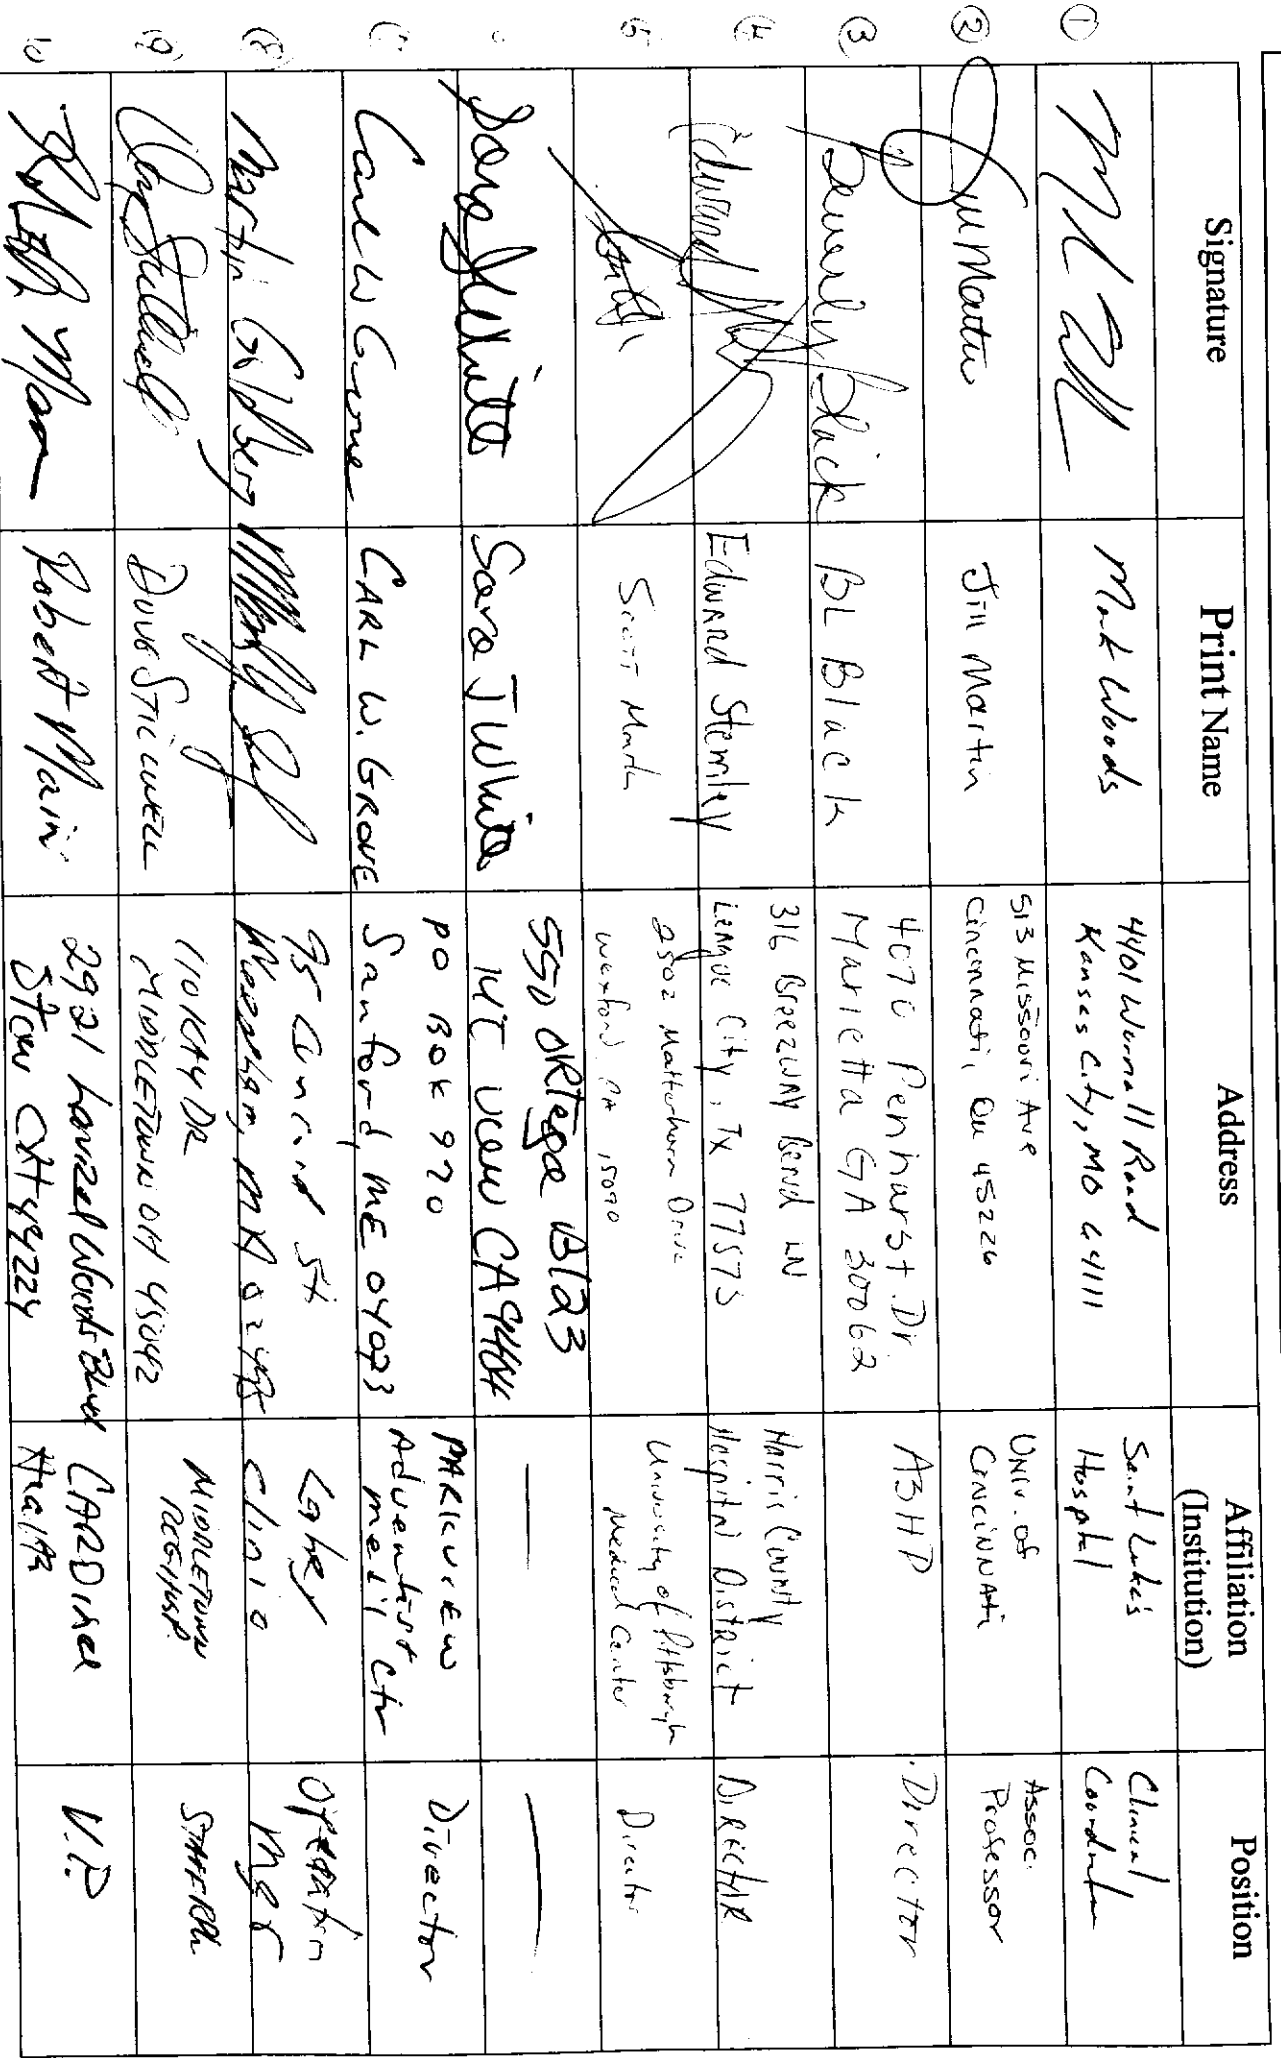 Signature Print Name Address Affiliation (Institution) Position
① Mark Woods 4401 Wornall Road Kansas City, MO 64111 Saint Luke's Hospital Clinical Coordinator
② Jill Martin Jill Martin 513 Missouri Ave Cincinnati, OH 45226 Univ. of Cincinnati Assoc. Professor
③ Beverly Black BL Black 4070 Penhurst Dr. Marietta GA 30062 ASHP Director
④ Edward Stemley 316 Breezway Bend LN League City, Tx 77573 Harris County Hospital District Director
5 Scott Mark 2502 Matterhorn Drive Wexford, PA 15090 University of Pittsburgh Medical Center Director
Sara J White Sara J White 550 ORTega B123 MT VIEW CA — —
Carl W Grove CARL W. GROVE PO BOX 970 Sanford, ME 04073 PARKVIEW Adventist med'l Ctr Director
(8) Martin Goldberg 95 St MA Lahey Clinic Operation Mgr
(9) Doug Stillwell DOUG STILLWELL 110 KAY DR MIDDLETOWN OH 45042 MIDDLETOWN REG HOSP. STAFF RPh
10 Robert Main 2921 Laurel Woods Blvd Stow OH 44224 CARDINAL Health V.P.